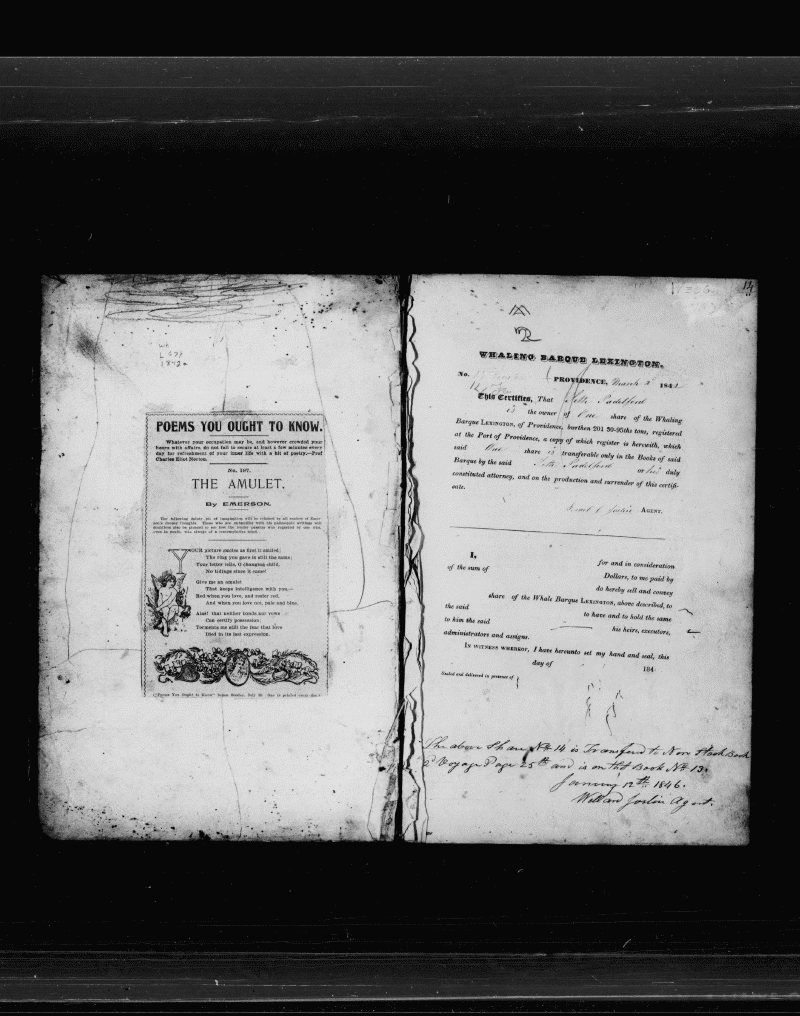 L 679
1842a
POEMS YOU OUGHT TO KNOW.
Whatever your occupation may be, and however crowded your
hours with affairs, do not fail to secure at least a few minutes every
day for refreshment of your inner life with a bit of poetry.—Prof
Charles Eliot Norton.
No. 197.
THE AMULET.
By EMERSON.
YOUR picture smiles as first it smiled;
The ring you gave is still the same;
Your letter tells, O changing child,
No tidings since it came!
Give me an amulet
That keeps intelligence with you,—
Red when you love, and rosier red,
And when you love not, pale and blue.
Alas! that neither bonds nor vows
Can certify possession;
Torments me still the fear that love
Died in its last expression.
14
WHALING BARQUE LEXINGTON.
No.
PROVIDENCE, March 2d 1842
This Certifies, That Seth Padelford
is the owner of One share of the Whaling
Barque LEXINGTON, of Providence, burthen 201 50-95ths tons, registered
at the Port of Providence, a copy of which register is herewith, which
said One share is transferable only in the Books of said
Barque by the said Seth Padelford or his duly
constituted attorney, and on the production and surrender of this certifi-
cate.
AGENT.
I,
for and in consideration
of the sum of
Dollars, to me paid by
do hereby sell and convey
share of the Whale Barque LEXINGTON, above described, to
the said
to have and to hold the same
to him the said
his heirs, executors,
administrators and assigns.
IN WITNESS WHEREOF, I have hereunto set my hand and seal, this
day of 184
Sealed and delivered in presence of
The above Share No 14 is Transferd to New Stock Book
2d Voyage Page 25th and is on that Book No 13.
January 12th 1846.
Willard Joslin Agent.